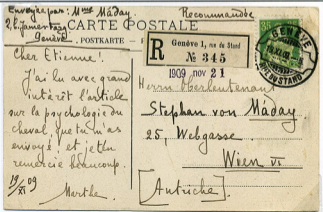 Envoyée par: Mme Màday.
Genève
Recommandée
CARTE POSTALE
POSTKARTE
R
Genève 1, rue du Stand
№ 345
1909 nov 21
GENÈVE
Cher Etienne!
J'ai lu avec grand
intérêt l'article
sur la psychologie du
cheval, que tu m'as
envoyé et je t'en
remercie beaucoup.
19/XI 09
Marthe.
Herrn Oberleutenant
Stephan von Màday
25, Webgasse
Wien VI
[Autriche]